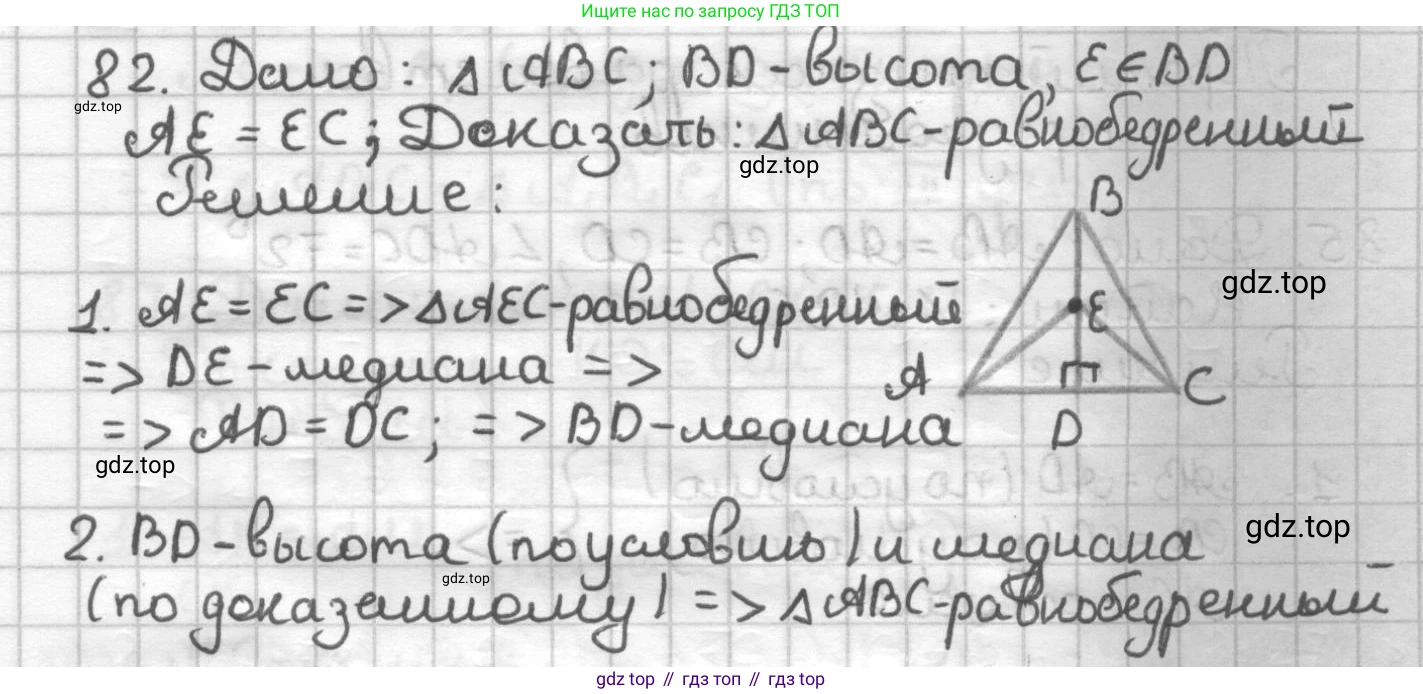 Ищите нас по запросу ГДЗ ТОП
82. Дано: △ABC; BD - высота, E∈BD
gdz.top
AE = EC; Доказать: △ABC - равнобедренный
gdz.top
Решение:
B
gdz.top
1. AE = EC => △AEC - равнобедренный
E
=> DE - медиана =>
A
C
=> AD = DC; => BD - медиана
D
gdz.top
2. BD - высота (по условию) и медиана
gdz.top
gdz.top
(по доказанному) => △ABC - равнобедренный
gdz top // гдз топ // гдз top